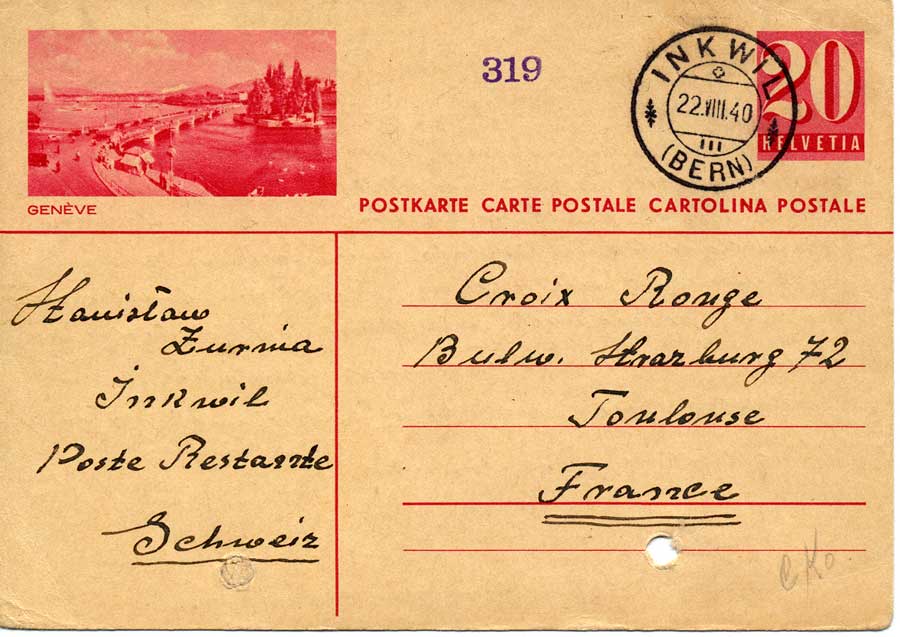 319
INKWIL
22.VIII.40
III
(BERN)
20
HELVETIA
GENÈVE
POSTKARTE CARTE POSTALE CARTOLINA POSTALE
Stanisław
Inkwil
Poste Restante
Schweiz
Croix Rouge
Bulw. Strazburg 72
Toulouse
France